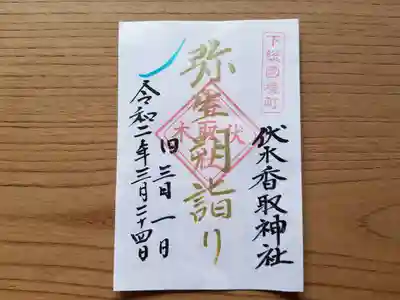 下総國境町
伏木香取神社
弥生朔詣り
旧三月一日
令和二年三月二十四日